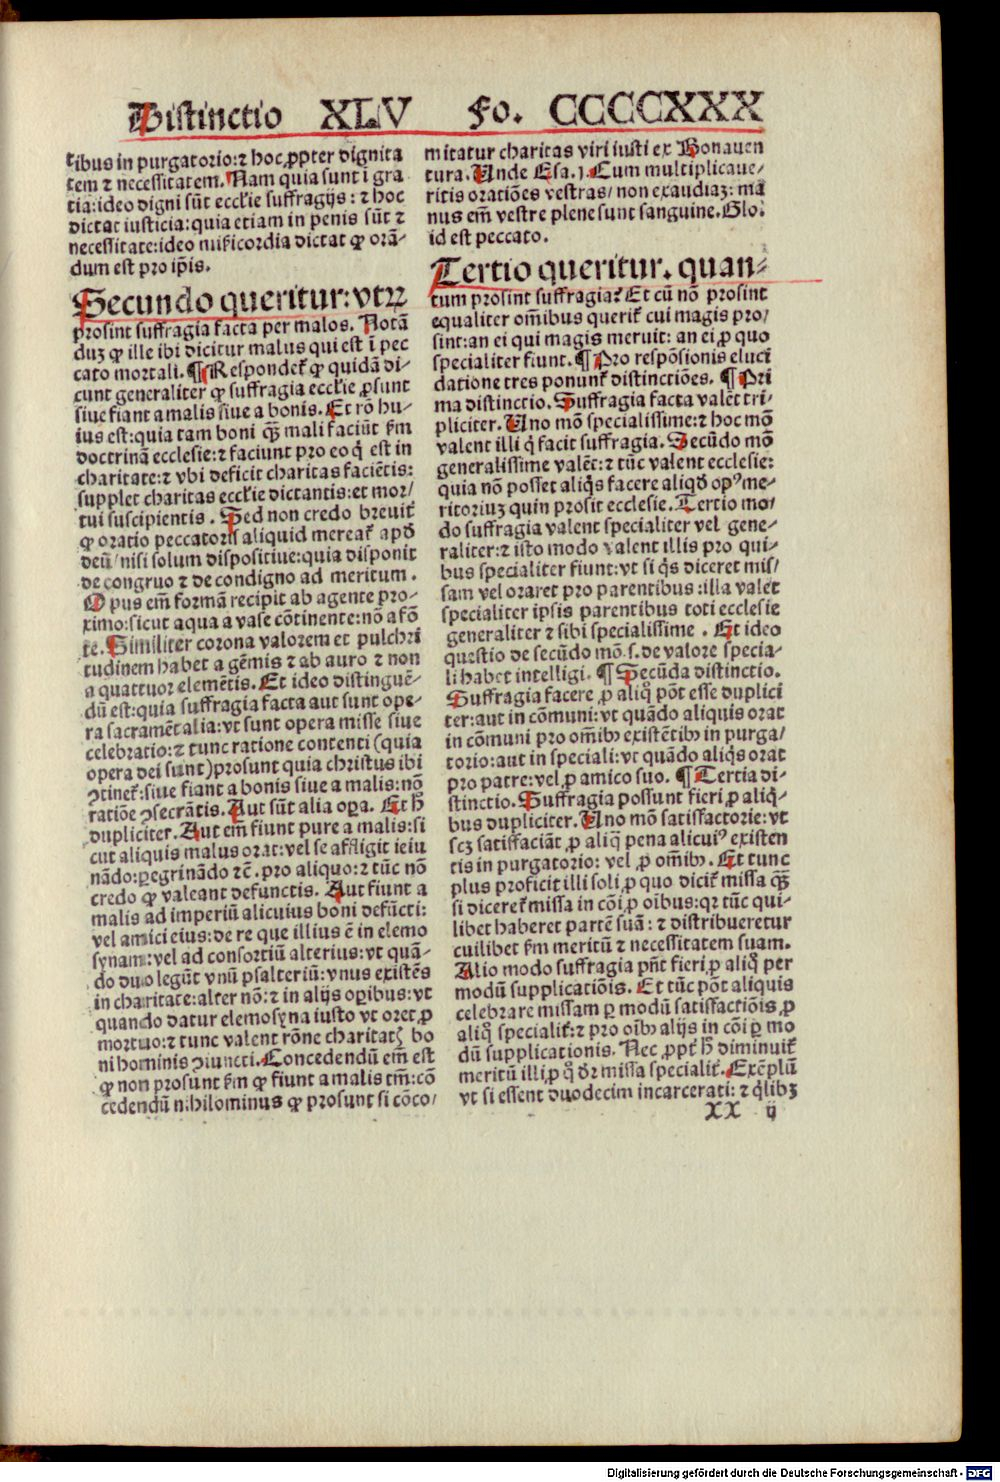 Distinctio XLV Fo. CCCCXXX
tibus in purgatorio: ⁊ hoc ꝓpter dignita
tem ⁊ necessitatem. Nam quia sunt ī gra
tia: ideo digni sūt eccl'ie suffragijs: ⁊ hoc
dictat iusticia: quia etiam in penis sūt ⁊
necessitate: ideo mīsericordia dictat ꝙ orā-
dum est pro ip̄is.
Secundo queritur: vtꝝ
prosint suffragia facta per malos. Notā
duꝫ ꝙ ille ibi dicitur malus qui est ī pec
cato mortali. ¶ Respondet᷑ ꝙ quidā di-
cunt generaliter ꝙ suffragia eccl'ie ꝓsunt
siue fiant a malis siue a bonis. Et rō hu-
ius est: quia tam boni qꝫ̄ mali faciūt ẜm
doctrinā ecclesie: ⁊ faciunt pro eo q̇ est in
charitate: ⁊ vbi deficit charitas faciētis:
supplet charitas eccl'ie dictantis: et mor/
tui suscipientis. Sed non credo breuit᷑
ꝙ oratio peccatoris aliquid mereat᷑ apd̄
deū/ nisi solum dispositiue: quia disponit
de congruo ⁊ de condigno ad meritum.
Opus em̄ formā recipit ab agente pro-
ximo: sicut aqua a vase cōtinente: nō a fō
te. Similiter corona valorem et pulchri
tudinem habet a gēmis ⁊ ab auro ⁊ non
a quattuor elemētis. Et ideo distinguē-
dū est: quia suffragia facta aut sunt ope-
ra sacramētalia: vt sunt opera misse siue
celebratio: ⁊ tunc ratione contenti (quia
opera dei sunt) prosunt quia christus ibi
ↄtinet᷑: siue fiant a bonis siue a malis: nō
ratiōe ↄsecrātis. Aut sūt alia oꝑa. Et h̄
dupliciter. Aut em̄ fiunt pure a malis: si
cut aliquis malus orat: vel se affligit ieiu
nādo: ꝑegrinādo ⁊c̄. pro aliquo: ⁊ tūc nō
credo ꝙ valeant defunctis. Aut fiunt a
malis ad imperiū alicuius boni defūcti:
vel amici eius: de re que illius ē in elemo
synam: vel ad consortiū alterius: vt quā-
do duo legūt vnū psalteriū: vnus existēs
in charitate: alter nō: ⁊ in alijs oꝑibus: vt
quando datur elemosyna iusto vt oret ꝓ
mortuo: ⁊ tunc valent rōne charitatꝭ bo
ni hominis ↄiuncti. Concedendū em̄ est
ꝙ non prosunt ẜm ꝙ fiunt a malis tm̄: cō
cedendū nihilominus ꝙ prosunt si cōco/
mitatur charitas viri iusti ex Bonauen
tura. Unde Esa. j. Cum multiplicaue-
ritis oratiōes vestras/ non exaudiaꝫ: ma
nus em̄ vestre plene sunt sanguine. Glo.
id est peccato.
Tertio queritur. quan-
tum prosint suffragia? Et cū nō prosint
equaliter om̄ibus querit᷑ cui magis pro/
sint: an ei qui magis meruit: an ei ꝓ quo
specialiter fiunt. ¶ Pro respōsionis eluci
datione tres ponunt᷑ distinctiōes. ¶ Pri
ma distinctio. Suffragia facta valēt tri-
pliciter. Uno mō specialissime: ⁊ hoc mō
valent illi q̇ facit suffragia. Secūdo mō
generalissime valēt: ⁊ tūc valent ecclesie:
quia nō posset aliq̇s facere aliqd̄ opꝰ me-
ritoriuꝫ quin prosit ecclesie. Tertio mo/
do suffragia valent specialiter vel gene-
raliter: ⁊ isto modo valent illis pro qui-
bus specialiter fiunt: vt si q̇s diceret mis/
sam vel oraret pro parentibus: illa valet
specialiter ipsis parentibus toti ecclesie
generaliter ⁊ sibi specialissime. Et ideo
questio de secūdo mō .s. de valore specia-
li habet intelligi. ¶ Secūda distinctio.
Suffragia facere ꝓ aliq̊ pōt esse duplici
ter: aut in cōmuni: vt quādo aliquis orat
in cōmuni pro om̄ibꝰ existētibꝰ in purga/
torio: aut in speciali: vt quādo aliq̇s orat
pro patre: vel ꝓ amico suo. ¶ Tertia di-
stinctio. Suffragia possunt fieri ꝓ aliq̇-
bus dupliciter. Uno mō satisfactorie: vt
scꝫ satisfaciāt ꝓ aliq̊ pena alicuiꝰ existen
tis in purgatorio: vel ꝓ om̄ibꝰ. Et tunc
plus proficit illi soli ꝓ quo dicit᷑ missa qꝫ̄
si diceret᷑ missa in cōi ꝓ oībus: qꝛ tūc qui-
libet haberet partē suā: ⁊ distribueretur
cuilibet ẜm meritū ⁊ necessitatem suam.
Alio modo suffragia pn̄t fieri ꝓ aliq̊ per
modū supplicatiōis. Et tūc pōt aliquis
celebrare missam ꝑ modū satisfactiōis ꝓ
aliq̊ specialit᷑: ⁊ pro oībꝰ alijs in cōi ꝑ mo
dū supplicationis. Nec ꝓpt᷑ h̄ diminuit᷑
meritū illi ꝓ q̊ dr̄ missa specialit᷑. Exēplū
vt si essent duodecim incarcerati: ⁊ q̇libꝫ
XX ij
Digitalisierung gefördert durch die Deutsche Forschungsgemeinschaft - DFG